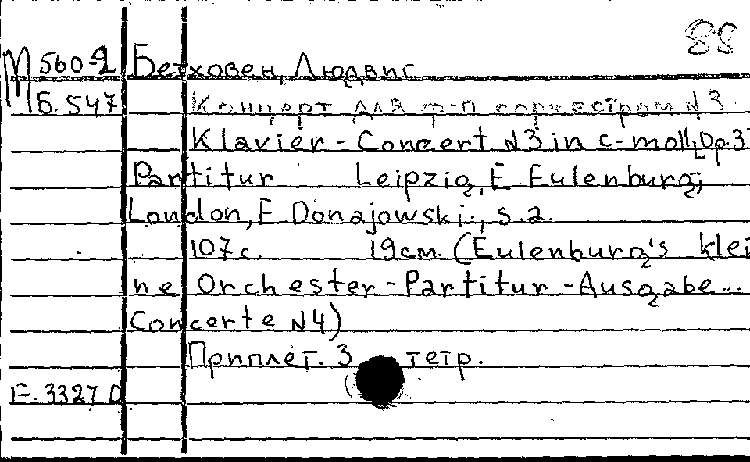 88
М 560-2 Бетховен, Людвис
Б. 547 Концерт для ф-п с оркестром N 3.
Klavier - Concert N3 in c-moll, Op. 3
Partitur Leipzig, E Eulenburg;
London, E. Donajowski., s. a.
107 с. 19 см. (Eulenburg's klei
ne Orchester - Partitur - Ausgabe...
Concerte N4)
Приплёт. 3 тетр.
Е. 3327 D